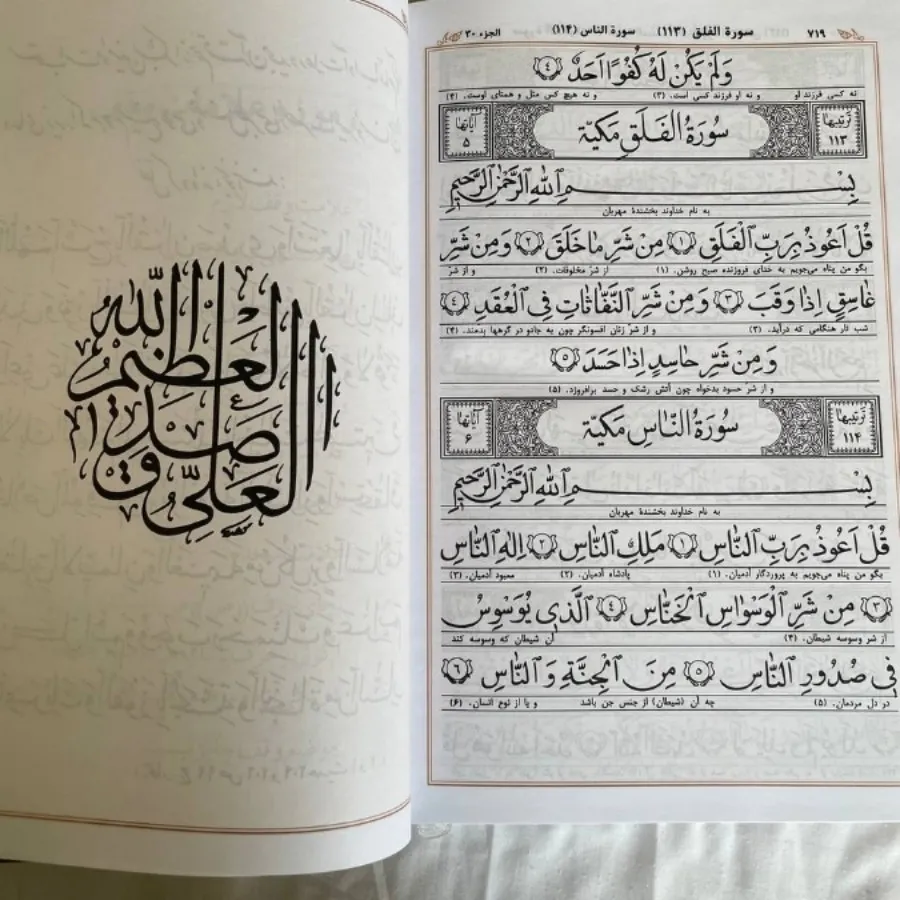 ٧١٩ سورة الفلق (١١٣) سورة الناس (١١٤) الجزء ٣٠
وَلَمْ يَكُنْ لَهُ كُفُوًا اَحَدٌ ﴿٤﴾
نه کسی فرزند او و نه او فرزند کسی است. (٣) و نه هیچ کس مثل و همتای اوست. (۴)
تَرتيبها ١١٣ سُورَةُ الفَلَقِ مَكيّة آياتها ٥
بِسْمِ اللّٰهِ الرَّحْمٰنِ الرَّحيمِ
به نام خداوند بخشندهٔ مهربان
قُلْ اَعُوذُ بِرَبِّ الْفَلَقِ ﴿١﴾ مِنْ شَرِّ مَا خَلَقَ ﴿٢﴾ وَمِنْ شَرِّ
بگو من پناه می‌جویم به خدای فروزنده صبح روشن. (١) از شرّ مخلوقات. (٢) و از شر
غَاسِقٍ اِذَا وَقَبَ ﴿٣﴾ وَمِنْ شَرِّ النَّفَّاثَاتِ فِي الْعُقَدِ ﴿٤﴾
شب تار هنگامی که درآید. (٣) و از شرّ زنان افسونگر چون به جادو در گره‌ها بدمند. (۴)
وَمِنْ شَرِّ حَاسِدٍ اِذَا حَسَدَ ﴿٥﴾
و از شرّ حسود بدخواه چون آتش رشک و حسد برافروزد. (۵)
تَرتيبها ١١٤ سُورَةُ النَّاسِ مَكيّة آياتها ٦
بِسْمِ اللّٰهِ الرَّحْمٰنِ الرَّحيمِ
به نام خداوند بخشندهٔ مهربان
قُلْ اَعُوذُ بِرَبِّ النَّاسِ ﴿١﴾ مَلِكِ النَّاسِ ﴿٢﴾ اِلٰهِ النَّاسِ
بگو من پناه می‌جویم به پروردگار آدمیان. (١) پادشاه آدمیان. (٢) معبود آدمیان. (٣)
﴿٣﴾ مِنْ شَرِّ الْوَسْوَاسِ الْخَنَّاسِ ﴿٤﴾ اَلَّذي يُوَسْوِسُ
از شر وسوسه شیطان. (۴) آن شیطان که وسوسه کند
في صُدُورِ النَّاسِ ﴿٥﴾ مِنَ الْجِنَّةِ وَ النَّاسِ ﴿٦﴾
در دل مردمان. (۵) چه آن (شیطان) از جنس جن باشد و یا از نوع انسان. (۶)
صَدَقَ اللّٰهُ الْعَلِيُّ الْعَظيمُ